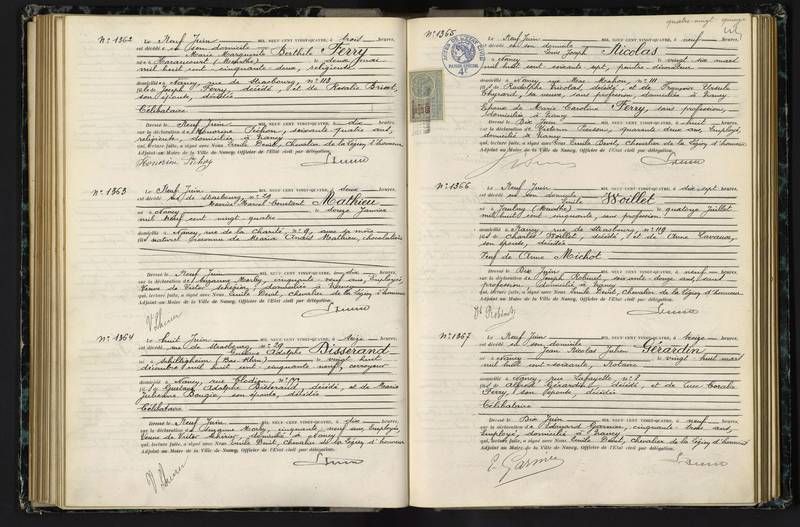 N° 1362
Le Neuf Juin MIL NEUF CENT VINGT-QUATRE, à trois heures,
est décédée en son domicile
Marie Marguerite Berthile Ferry
née à Haraucourt (Meurthe) le deux mai
mil huit cent cinquante deux, religieuse
domiciliée à Nancy, rue de Strasbourg, n° 113
fille de Joseph Ferry, décédé, et de Rosalie
son épouse, décédée
Célibataire
Dressé le Neuf Juin MIL NEUF CENT VINGT-QUATRE, à dix heures,
sur la déclaration de Honorine Pichon, soixante quatre ans,
religieuse, domiciliée à Nancy
qui, lecture faite, a signé avec Nous Emile Devit, Chevalier de la Légion d'honneur
Adjoint au Maire de la Ville de Nancy, Officier de l'État civil par délégation.
N° 1363
Le Neuf Juin MIL NEUF CENT VINGT-QUATRE, à deux heures,
est décédé rue de Strasbourg, n° 29
Marcel Constant Mathieu
né à Nancy le douze Janvier
mil neuf cent vingt quatre
domicilié à Nancy, rue de la Charité n° 9, avec sa mère
fils naturel de Maria Mathieu, chocolatière
Dressé le Neuf Juin MIL NEUF CENT VINGT-QUATRE, à dix heures,
sur la déclaration de Suzanne Marly, cinquante neuf ans, Employée,
domiciliée à Nancy
qui, lecture faite, a signé avec Nous Emile Devit, Chevalier de la Légion d'honneur
Adjoint au Maire de la Ville de Nancy, Officier de l'État civil par délégation.
N° 1364
Le huit Juin MIL NEUF CENT VINGT-QUATRE, à seize heures,
est décédé rue de Strasbourg, n° 29
Gustave Adolphe Bisserand
né à Schiltigheim (Bas-Rhin) le vingt huit
décembre mil huit cent cinquante neuf, corroyeur
domicilié à Nancy, rue
fils de Gustave Adolphe Bisserand, décédé, et de Marie
Julienne son épouse, décédée
Célibataire
Dressé le Neuf Juin MIL NEUF CENT VINGT-QUATRE, à dix heures,
sur la déclaration de Suzanne Marly, cinquante neuf ans Employée,
domiciliée à Nancy
qui, lecture faite, a signé avec Nous Emile Devit, Chevalier de la Légion d'honneur
Adjoint au Maire de la Ville de Nancy, Officier de l'État civil par délégation.
quatre-vingt-quinze
N° 1365
Le Neuf Juin MIL NEUF CENT VINGT-QUATRE, à neuf heures,
est décédé en son domicile
Louis Joseph Nicolas
né à Nancy le vingt six mars
mil huit cent soixante sept, peintre-décorateur
domicilié à Nancy, rue Mac Mahon, n° 111
fils de Rodolphe Nicolas, décédé, et de Françoise Ursule
sa veuve, sans profession, domiciliée à Nancy
Époux de Marie Caroline Ferry, sans profession,
domiciliée à Nancy
Dressé le Dix Juin MIL NEUF CENT VINGT-QUATRE, à huit heures,
sur la déclaration de Victorin quarante deux ans, Employé,
domicilié à Nancy
qui, lecture faite, a signé avec Nous Emile Devit, Chevalier de la Légion d'honneur
Adjoint au Maire de la Ville de Nancy, Officier de l'État civil par délégation.
N° 1366
Le Neuf Juin MIL NEUF CENT VINGT-QUATRE, à dix sept heures,
est décédé en son domicile
Emile Woillet
né à Jaulny (Meurthe) le quatorze Juillet
mil huit cent cinquante, sans profession
domicilié à Nancy, rue de Strasbourg, n° 119
fils de Charles Woillet, décédé, et de Anne Lavaux,
son épouse, décédée
Veuf de Anne Michot
Dressé le Dix Juin MIL NEUF CENT VINGT-QUATRE, à neuf heures,
sur la déclaration de Joseph Robinet, soixante douze ans, sans
profession, domicilié à Nancy
qui, lecture faite, a signé avec Nous Emile Devit, Chevalier de la Légion d'honneur
Adjoint au Maire de la Ville de Nancy, Officier de l'État civil par délégation.
N° 1367
Le Neuf Juin MIL NEUF CENT VINGT-QUATRE, à treize heures,
est décédé en son domicile
Jean Nicolas Julien Gérardin
né à Nancy le vingt-huit mars
mil huit cent soixante, Notaire
domicilié à Nancy, rue Lafayette n° 2
fils de Alfred Gérardin, décédé, et de Luce Coralie
Ferry, son épouse, décédée
Célibataire
Dressé le Dix Juin MIL NEUF CENT VINGT-QUATRE, à neuf heures,
sur la déclaration de Edouard Garnier, cinquante-trois ans,
employé, domicilié à Nancy
qui, lecture faite, a signé avec Nous Emile Devit, Chevalier de la Légion d'honneur
Adjoint au Maire de la Ville de Nancy, Officier de l'État civil par délégation.
E. Garnier